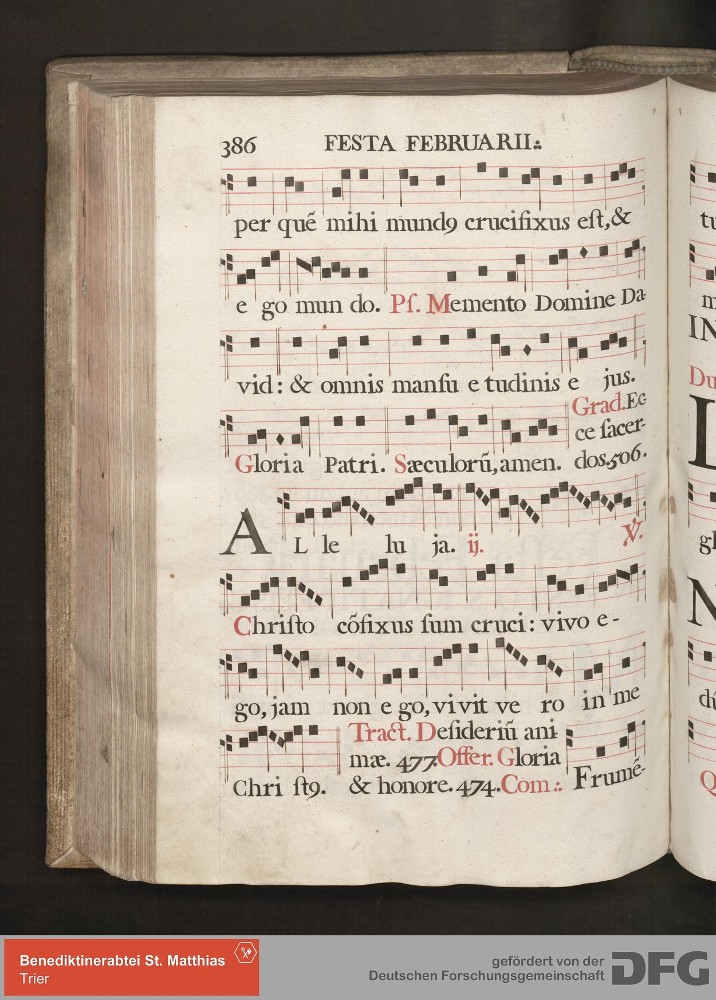 386 FESTA FEBRUARII.:.
per quẽ mihi mundꝯ crucifixus eſt, &
e go mun do. Pſ. Memento Domine Da-
vid: & omnis manſu e tudinis e jus.
Grad. Ec
ce ſacer-
Gloria Patri. Sæculorũ, amen. dos. 506.
A L le lu ja. ij. ℣.
Chriſto cõfixus ſum cruci: vivo e-
go, jam non e go, vivit ve ro in me
Tract. Deſideriũ ani
mæ. 477. Offer. Gloria
Chri ſtꝯ. & honore. 474. Com.:. Frumẽ-
tu
m
IN
Du
L
gl
N
dú
Q
Benediktinerabtei St. Matthias
Trier
gefördert von der
Deutschen Forschungsgemeinschaft DFG